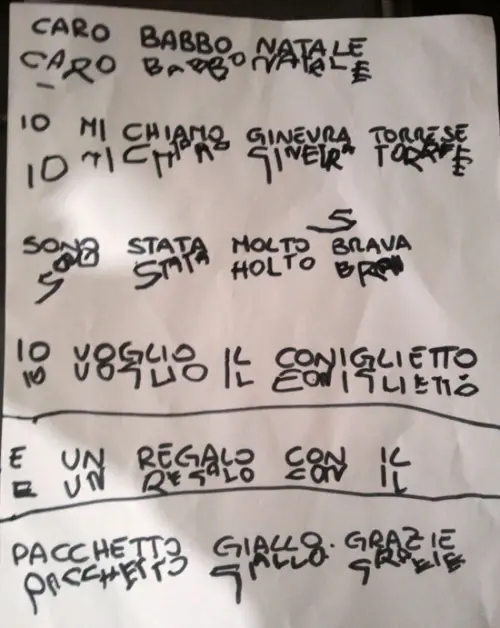 CARO BABBO NATALE
CARO BABBO NATALE
IO MI CHIAMO GINEVRA TORRESE
IO MI GINEVRA
S
SONO STATA MOLTO BRAVA
S STATA MOLTO
IO VOGLIO IL CONIGLIETTO
IO VOGLIO IL CONIGLIETTO
E UN REGALO CON IL
E UN REGALO CON IL
PACCHETTO GIALLO. GRAZIE
PACCHETTO GIALLO GRAZIE